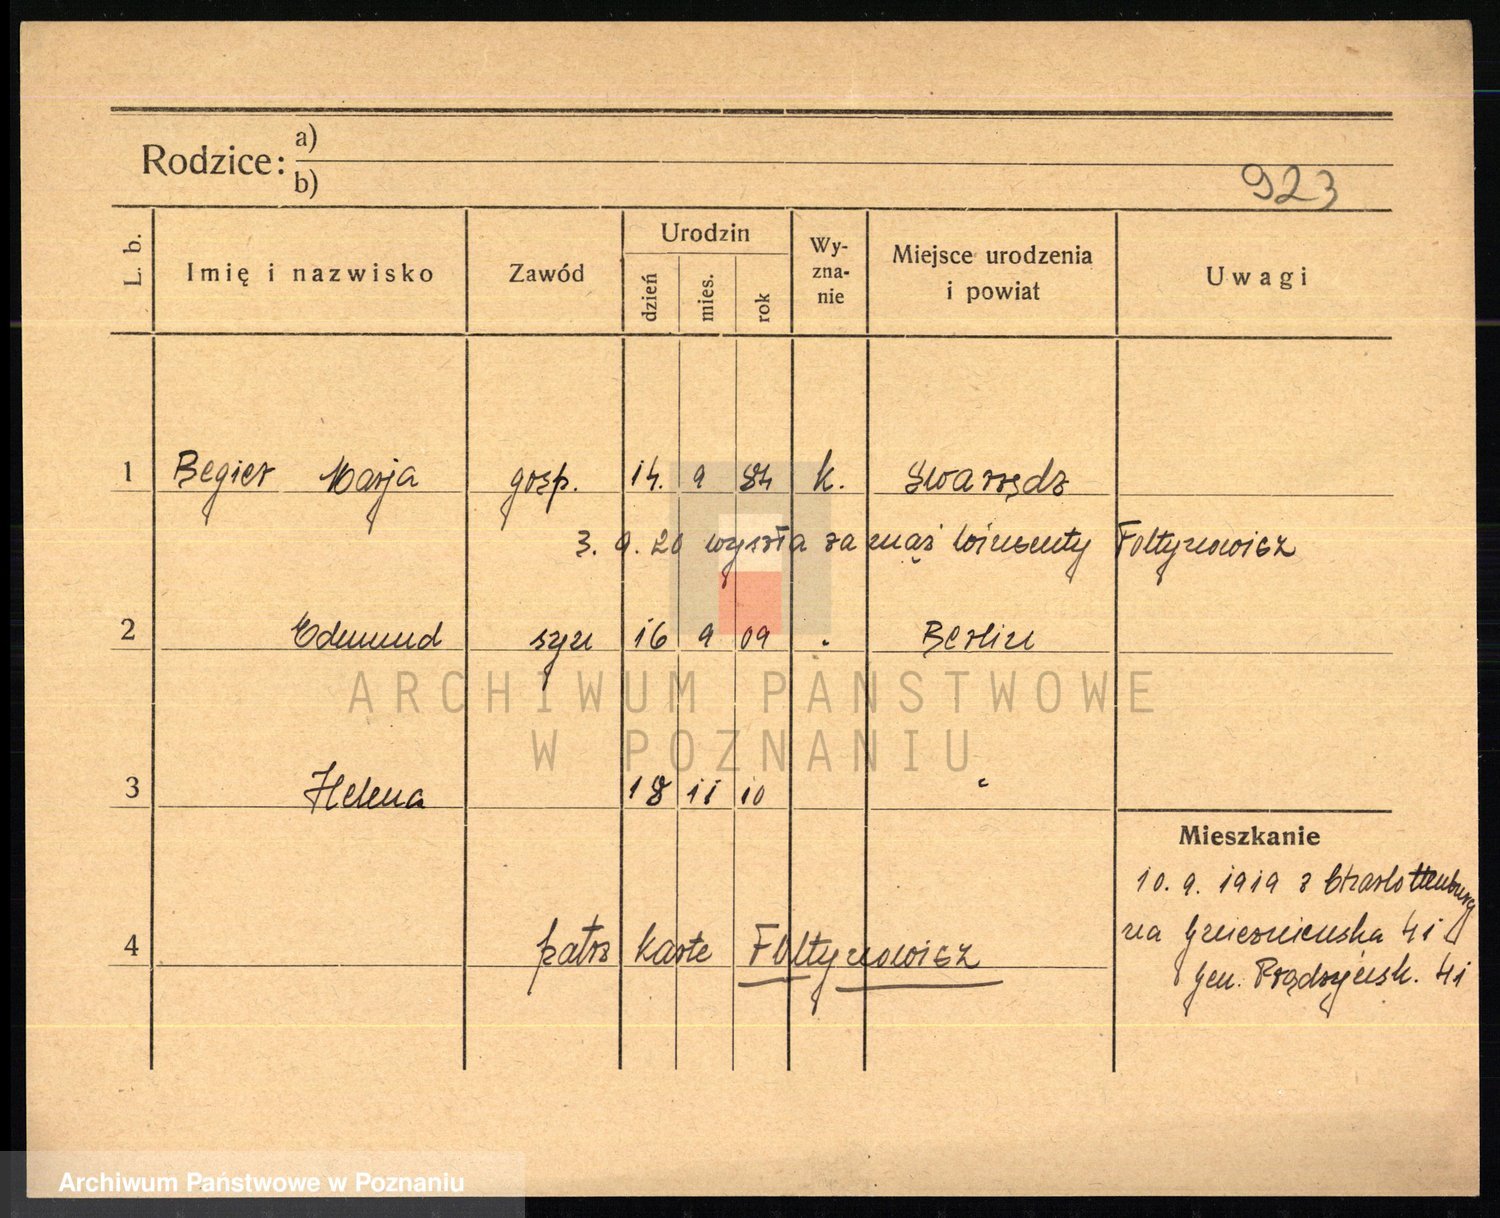 Rodzice: a)
b)
923
L. b.
Imię i nazwisko
Zawód
Urodzin
dzień
mies.
rok
Wy-
zna-
nie
Miejsce urodzenia
i powiat
Uwagi
1 Begier Marja gosp. 14. 9 84 k. Swarzędz
3. 9. 20 wyszła za mąż Wincenty Foltynowicz
2 Edmund syn 16 9 09 " Berlin
3 Helena 18 11 10 "
Mieszkanie
10. 9. 1919 z Charlottenburg
na Gnieznienska 41
Gen. Prądzyńsk. 41
4 patrz karte Foltynowicz
ARCHIWUM PAŃSTWOWE
W POZNANIU
Archiwum Państwowe w Poznaniu